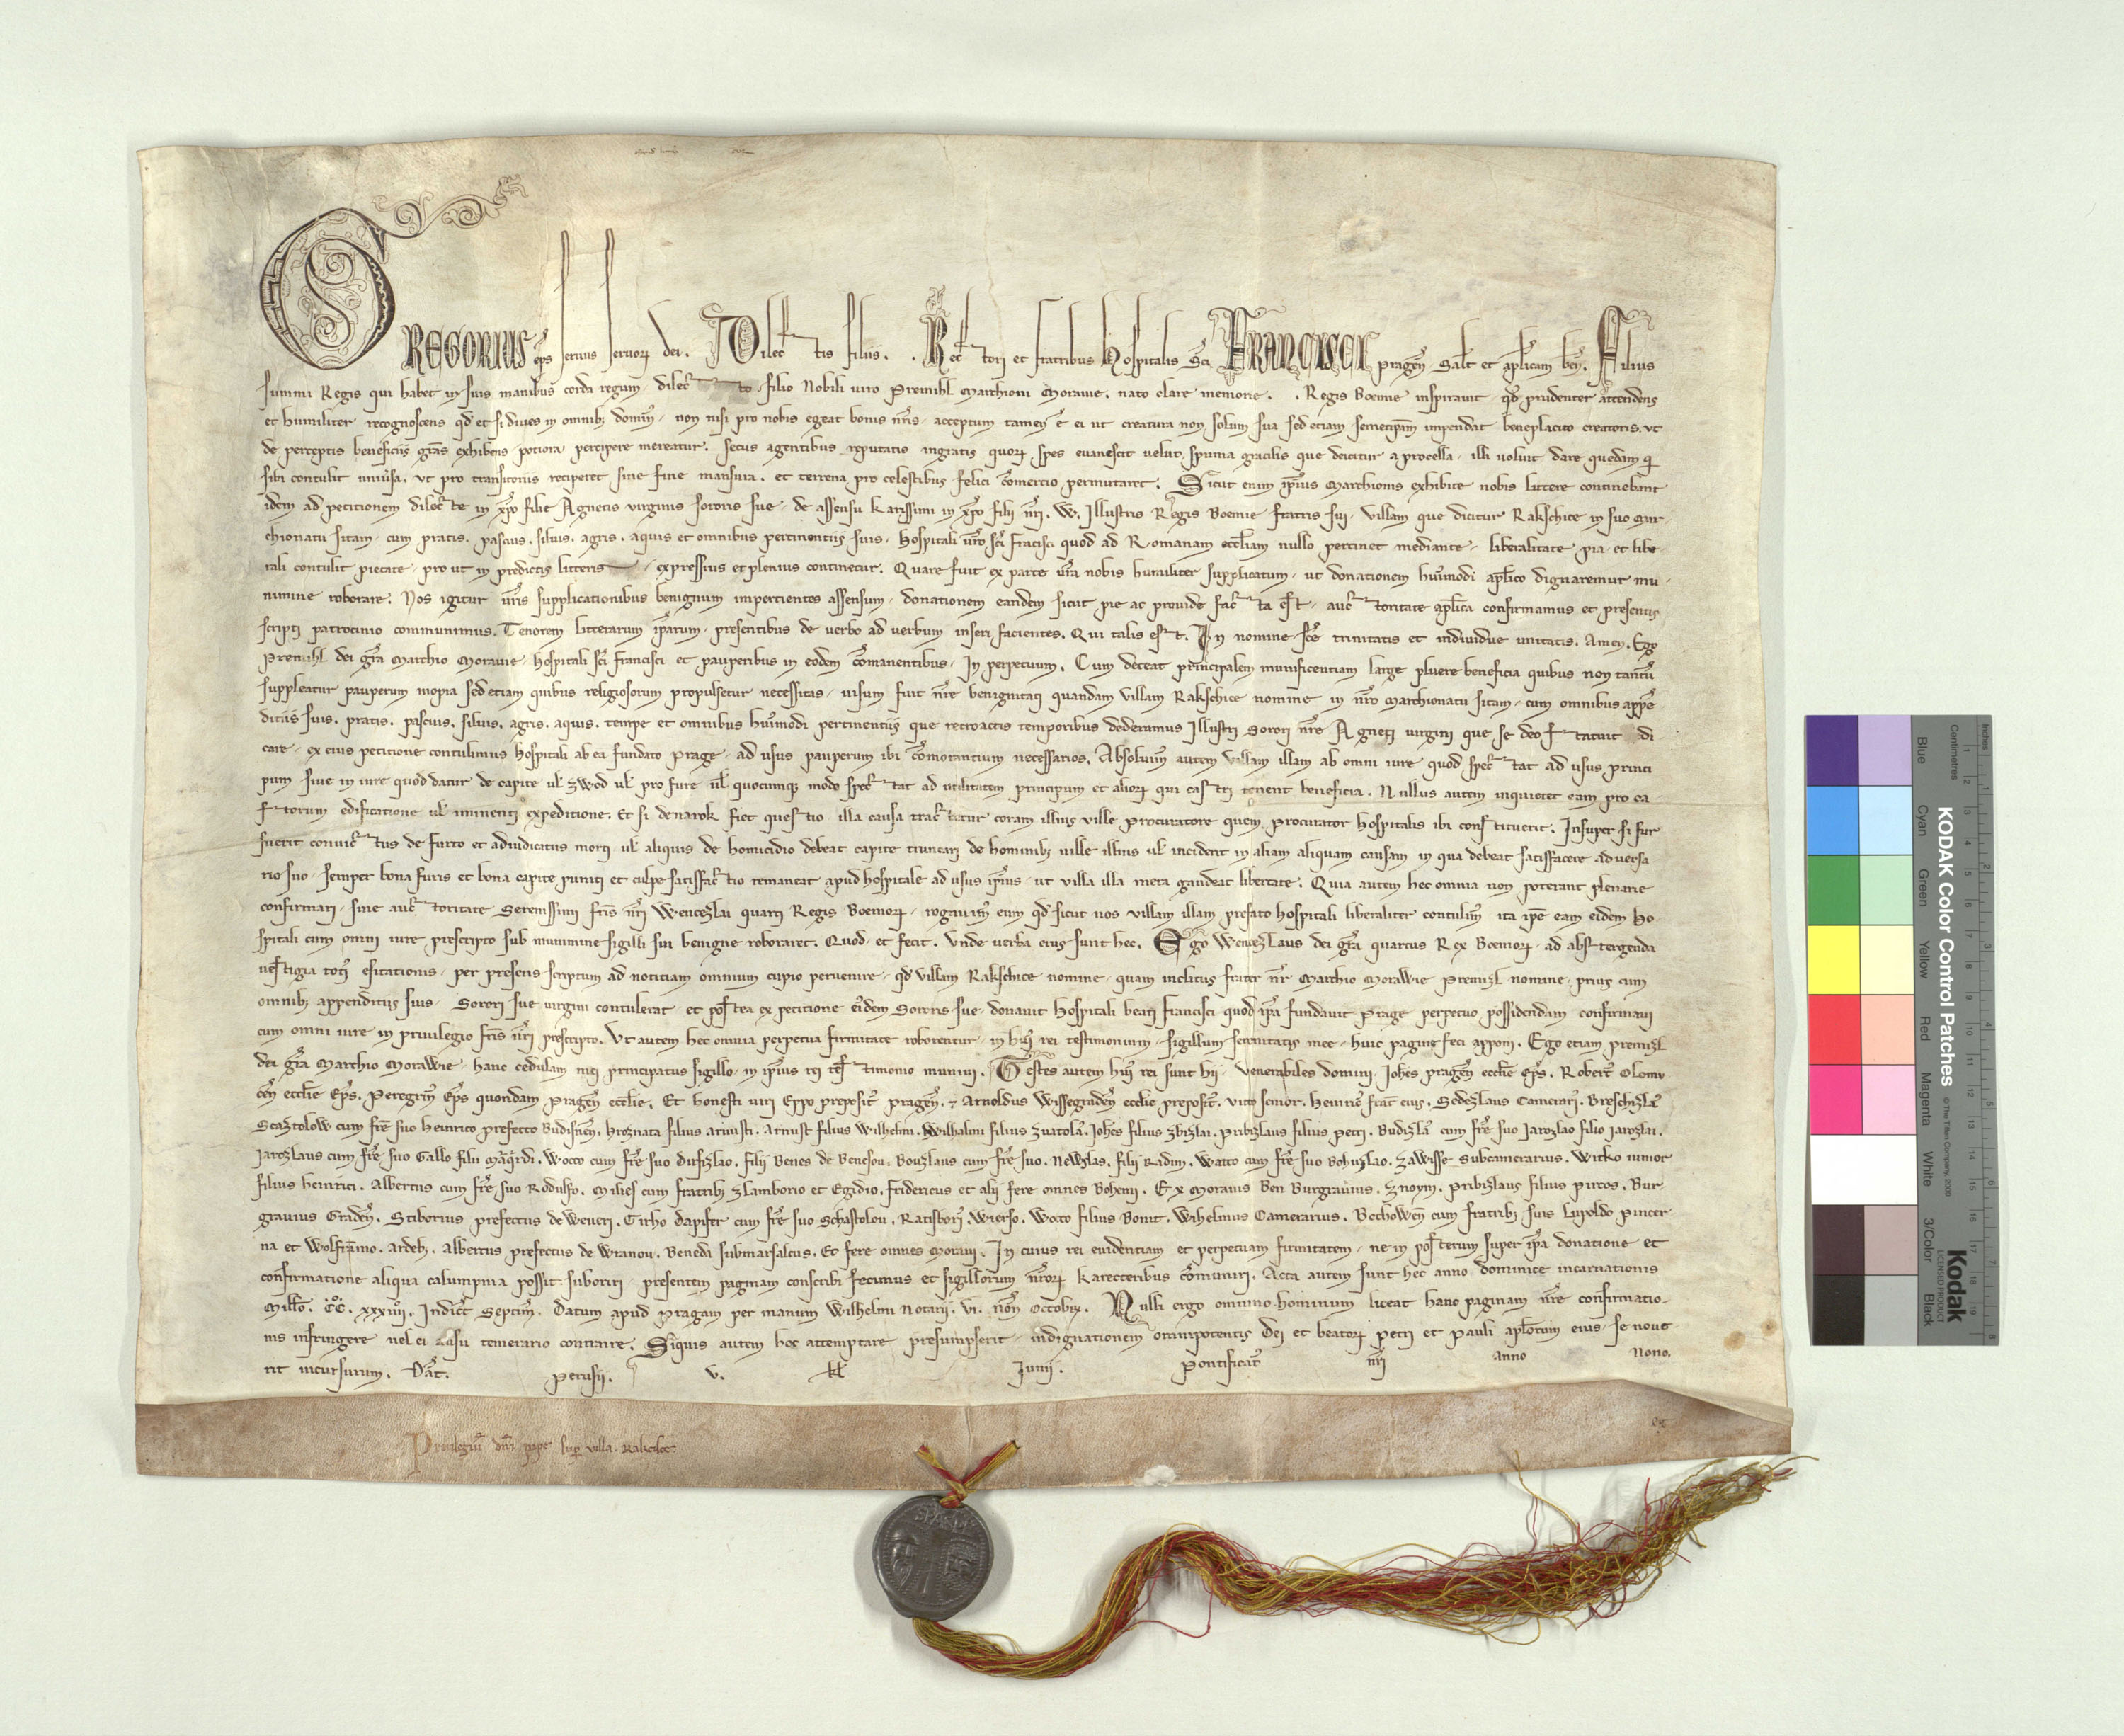 GREGORIUS ep̄s seruus seruoꝝ dei. Dilectis filiis. . Rectori et fratribus Hospitalis Sc̄i FRANCISCI pragen̄ Salt̄ et ap̄licam ben̄. Filius
summi Regis qui habet in suis manibus corda regum, dilecto filio Nobili uiro Premihl Marchioni Morauie, nato clare memorie . . Regis Boemie inspirauit, qd̄ prudenter attendens
et humiliter recognoscens qd̄ et si diues in omnibꝫ dominꝰ, non nisi pro nobis egeat bonis nr̄is, acceptum tamen ē ei ut creatura non solum sua sed etiam semetipsam impendat beneplacito creatoris, ut
de perceptis beneficiis gr̄as exhibens potiora percipere mereatur, secus agentibus reputatis ingratis quoꝝ spes euanescit uelut spuma gracilis que deicitur a procella, illi uoluit dare quedam qi
sibi contulit uniūsa, ut pro transitoriis reciperet sine fine mansura, et terrena pro celestibus felici cōmercio permutaret. Sicut enim ip̄ius Marchionis exhibite nobis littere continebant
idem ad petitionem dilecte in xp̄o filie Agnetis uirginis sororis sue, de assensu karissimi in xp̄o filii nr̄i, W. Illustris Regis Boemie fratris sui, uillam que dicitur Rakschice in suo Mar-
chionatu sitam, cum pratis, pascuis, siluis, agris, aquis et omnibus pertinentiis suis, Hospitali ur̄o sc̄i fracisci quod ad Romanam eccl̄iam nullo pertinet mediante, liberalitate pia et libe-
rali contulit pietate, pro ut in predictis litteris expressius et plenius continetur. Quare fuit ex parte ur̄a nobis humiliter supplicatum, ut donationem huīmodi ap̄lico dignaremur mu-
nimine roborare. Nos igitur ur̄is supplicationibus benignum impertientes assensum, donationem eandem sicut pie ac prouide facta est, auctoritate ap̄lica confirmamus et presentis
scripti patrocinio communimus. Tenorem litterarum ip̄arum, presentibus de uerbo ad uerbum inseri facientes. Qui talis est. In nomine sc̄e trinitatis et indiuidue unitatis. Amen. Ego
Premihl dei gr̄a Marchio Morauie, Hospitali sc̄i francisci et pauperibus in eodem cōmanentibus, In perpetuum. Cum deceat principalem munificentiam large pluere beneficia quibus non tantū
suppleatur pauperum inopia sed etiam quibus religiosorum propulsetur necessitas, uisum fuit nr̄e benignitati quandam uillam Rakschice nomine in nr̄o Marchionatu sitam, cum omnibus appē-
ditiis suis, pratis, pascuis, siluis, agris, aquis, tempe et omnibus huīmodi pertinentiis que retroactis temporibus dederamus Illustri Sorori nr̄e Agneti uirgini que se deo statuit di
care, ex eius petitione contulimus Hospitali ab ea fundato Prage, ad usus pauperum ibi cōmorantium necessarios. Absoluimꝰ autem uillam illam ab omni iure quod spectat ad usus princi
pum siue in iure quod datur de capite ul̄ zwod ul̄ pro fure ul̄ quocumqꝫ modo spectat ad utilitatem principum et alioꝝ qui castri tenent beneficia. Nullus autem inquietet eam pro ca-
strorum edificatione ul̄ iminenti expeditione. Et si de narok fiet questio, illa causa tractetur coram illius uille Procuratore quem Procurator Hospitalis ibi constituerit. Insuper si fur
fuerit conuictus de furto et adiudicatus morti ul̄ aliquis de homicidio debeat capite truncari de hominibꝫ uille illius ul̄ incident in aliam aliquam causam in qua debeat satisfacere aduersa
rio suo, semper bona furis et bona capite puniti et culpe satisfactio remaneat apud hospitale ad usus ip̄ius, ut uilla illa mera gaudeat libertate. Quia autem hec omnia non poterant plenarie
confirmari, sine auctoritate Serenissimi fr̄is nr̄i Wencezlai quarti Regis Boemoꝝ, rogauimꝰ eum qd̄ sicut nos uillam illam prefato hospitali liberaliter contulimꝰ ita ip̄e eam eidem Ho-
spitali cum omni iure prescripto sub munimine sigilli sui benigne roboraret. Quod et fecit. Vnde uerba eius sunt hec. Ego Wencezlaus dei gr̄a quartus Rex Boemoꝝ, ad abstergenda
uestigia totiꝰ esitationis, per presens scriptum ad notitiam omnium cupio peruenire, qd̄ uillam Rakschice nomine, quam inclitus frater nr̄ Marchio Morawie Premizl nomine, prius cum
omnibꝫ appenditiis suis, Sorori sue uirgini contulerat, et postea ex petitione eiꝰdem Sororis sue, donauit Hospitali beati francisci quod ip̄a fundauit Prage perpetuo possidendam confirmaui
cum omni iure in priuilegio fr̄is nr̄i prescripto. Vt autem hec omnia perpetua firmitate roborentur, in huiꝰ rei testimonium, sigillum serenitatis mee, huic pagine feci apponi. Ego etiam Premizl
dei gr̄a Marchio Morawie, hanc cedulam mei principatus sigillo, in ip̄ius rei testimonio muniui. Testes autem huiꝰ rei sunt hii, Venerabiles domini, Joh̄es pragen̄ eccl̄ie Ep̄s, Robertꝰ Olomu
cen̄ eccl̄ie Ep̄s, Peregrinꝰ Ep̄s quondam Pragen̄ eccl̄ie. Et honesti uiri Eppo prepositꝰ pragen̄, ⁊ Arnoldus Wissegraden̄ eccl̄ie prepositꝰ, vito senior, Heinricꝰ frat̄ eius, Sdezlaus Camerariꝰ, Breschizlaꝰ
Scaztolow cum fr̄e suo Heinrico prefecto Budisinen̄, Hroznata filius arnusti, Arnust filius Wilhelmi, Wilhalmi filius zuatolaꝰ, Joh̄es filius zbizlai, Pribizlaus filius Petri, Budizlaꝰ cum fr̄e suo Jarozlao filio Jarozlai,
Jarozlaus cum fr̄e suo Gallo filii Marq̄rdi, Wocco cum fr̄e suo Dirsizlao, filii Benes de Benesou, Bouzlaus cum fr̄e suo, Newzlas, filii Radim, Watto cum fr̄e suo Bohuzlao, zawisse Subcamerarius, Witko iunior
filius heinrici, Albertus cum fr̄e suo Rodulfo, Milies cum fratribꝫ zlamborio et Egidio, fridericus et alii fere omnes Bohemi. Ex Morauis Ben Burgrauius, znoym, Pribizlaus filius Pircos, Bur-
grauius Graden̄, Stiborius prefectus de Weueri, Cirho dapifer cum fr̄e suo Schastolou, Ratisboriꝰ, Wierso, Wocco filius Bonut, Wilhelmus Camerarius, Bechowen̄ cum fratribꝫ suis Lupoldo Pincer-
na et Wolframo, Ardeb, Albertus prefectus de Wranou, Beneda submarsalcus, Et fere omnes Moraui. In cuius rei euidentiam et perpetuam firmitatem, ne in posterum super ip̄a donatione et
confirmatione aliqua calumpnia possit suboriri, presentem paginam conscribi fecimus et sigillorum nr̄oꝝ karecteribus cōmuniri. Acta autem sunt hec anno dominice incarnationis
Mill̄o. CC. xxxiiii. Indict̄ Septimꝰ. Datum apud Pragam per manum Wilhelmi Notarii. vi. non̄ Octobꝝ. Nulli ergo omnino hominum liceat hanc paginam nr̄e confirmatio-
nis infringere uel ei ausu temerario contraire. Siquis autem hoc attemptare presumpserit, indignationem omnipotentis dei et beatoꝝ Petri et Pauli ap̄lorum eius, se noue-
rit incursurum. Dat̄. Perusii. v. kl̄ Junii. Pontificatꝰ nr̄i anno Nono.
Priuilegiū dn̄i pape sup̄ uilla Rakschice
SPASPE
KODAK Color Control Patches
© The Tiffen Company, 2000
Kodak
LICENSED PRODUCT
Inches
Centimetres
Blue Cyan Green Yellow Red Magenta White 3/Color Black